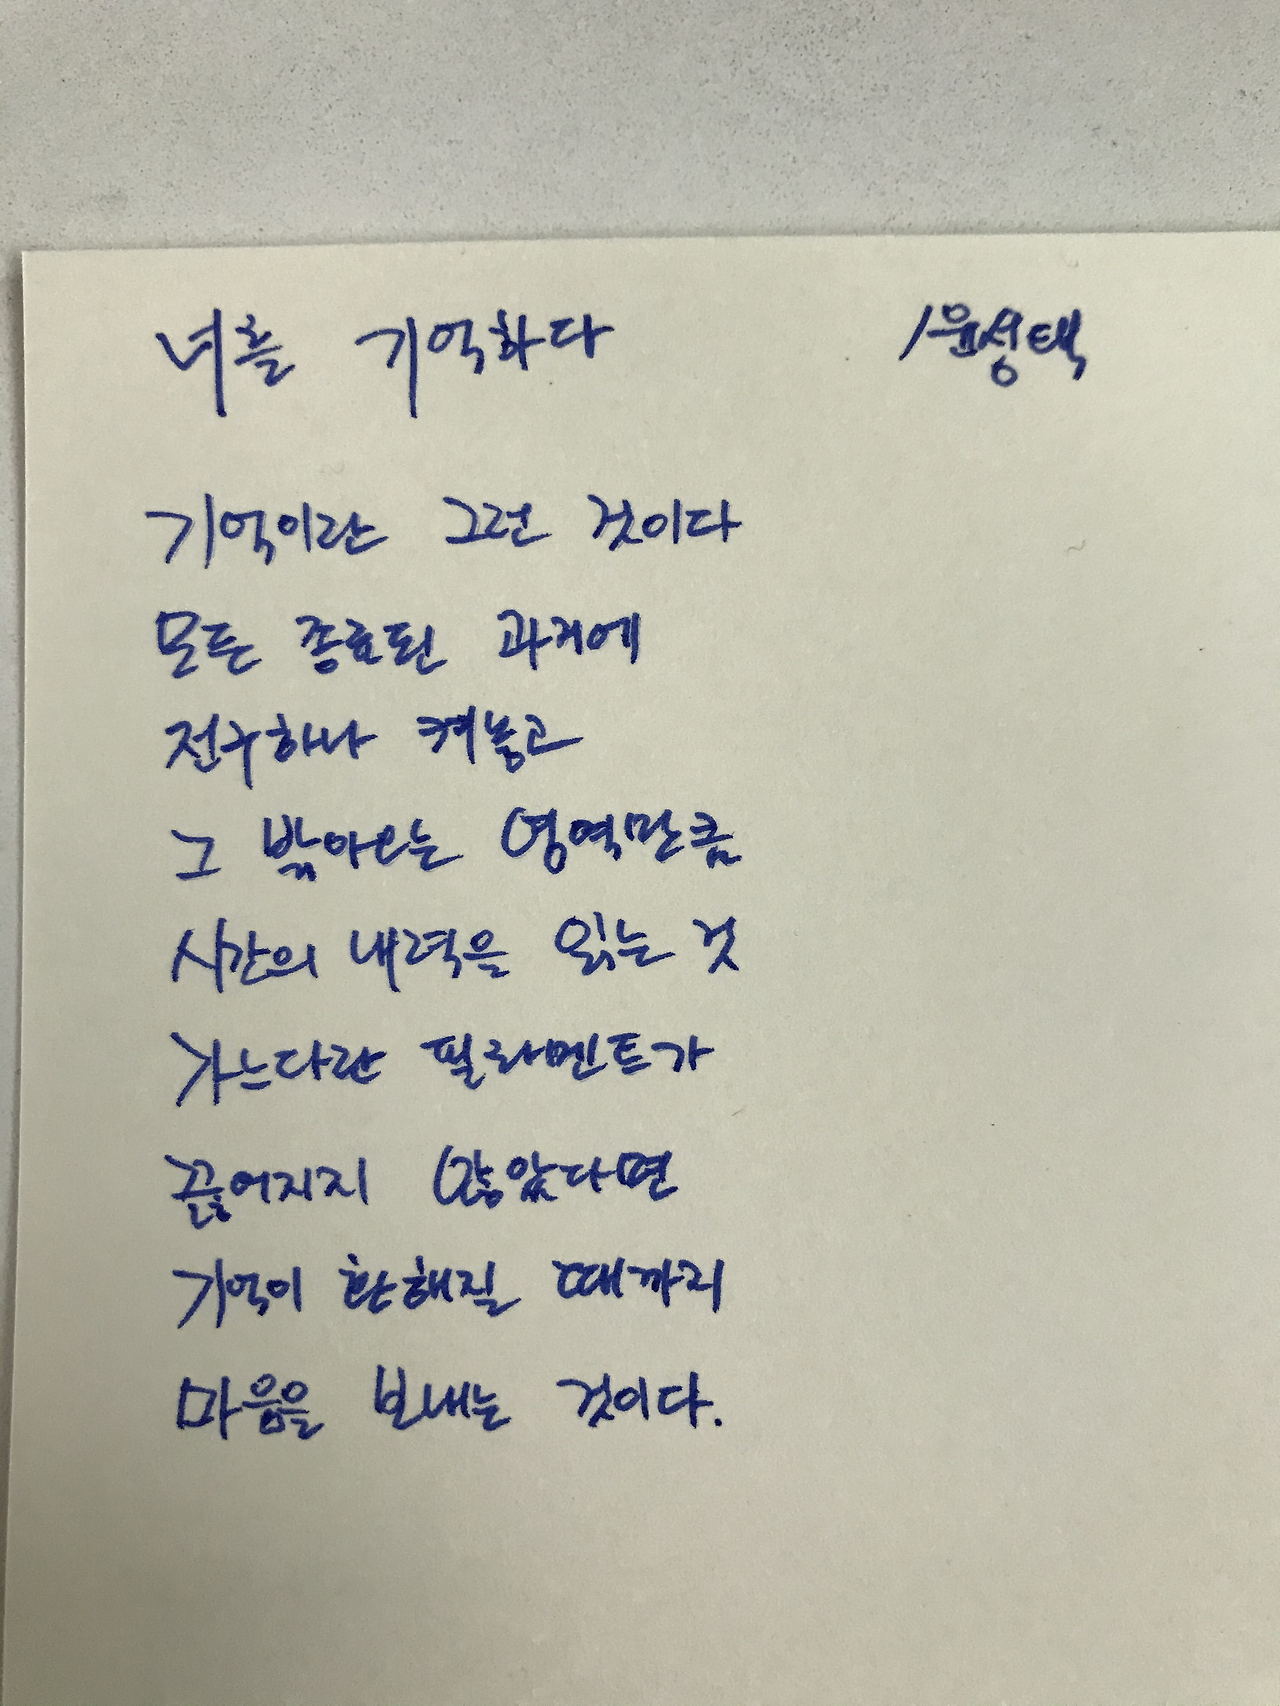 너를 기억하다 /윤성택
기억이란 그런 것이다
모든 종료된 과거에
전구하나 켜놓고
그 밝아오는 영역만큼
시간의 내력을 읽는 것
가느다란 필라멘트가
끊어지지 않았다면
기억이 환해질 때까지
마음을 보내는 것이다.